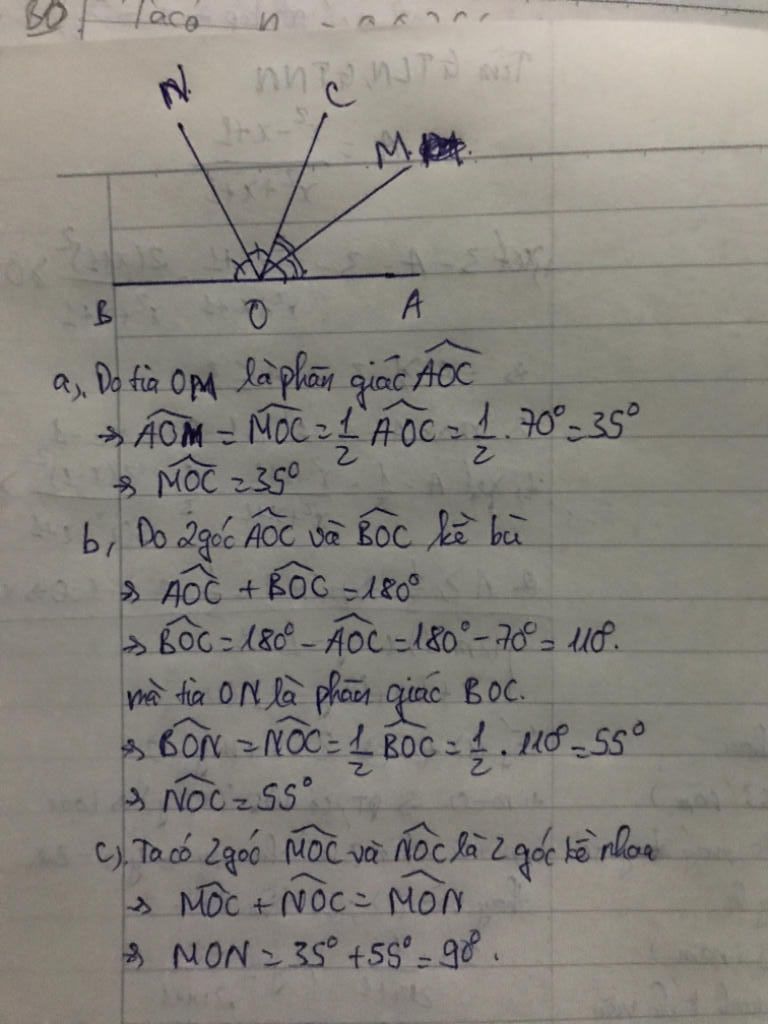 Ta có
N.
C
M.
B
O
A
a). Do tia OM là phân giác AOC
⇒ AOM = MOC = 1/2 AOC = 1/2 . 70° = 35°
⇒ MOC = 35°
b, Do 2 góc AOC và BOC kề bù
⇒ AOC + BOC = 180°
⇒ BOC = 180° - AOC = 180° - 70° = 110°.
mà tia ON là phân giác BOC.
⇒ BON = NOC = 1/2 BOC = 1/2 . 110° = 55°
⇒ NOC = 55°
c). Ta có 2 góc MOC và NOC là 2 góc kề nhau
⇒ MOC + NOC = MON
⇒ MON = 35° + 55° = 90°.